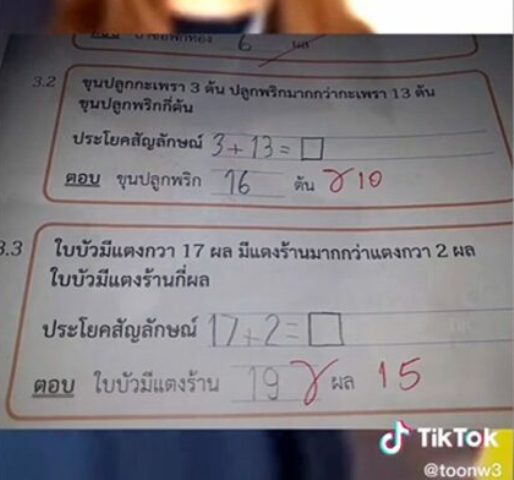 6 ผล
3.2 ขุนปลูกกะเพรา 3 ต้น ปลูกพริกมากกว่ากะเพรา 13 ต้น
ขุนปลูกพริกกี่ต้น
ประโยคสัญลักษณ์ 3+13=□
ตอบ ขุนปลูกพริก 16 ต้น 10
3.3 ใบบัวมีแตงกวา 17 ผล มีแตงร้านมากกว่าแตงกวา 2 ผล
ใบบัวมีแตงร้านกี่ผล
ประโยคสัญลักษณ์ 17+2=□
ตอบ ใบบัวมีแตงร้าน 19 ผล 15
TikTok
@toonw3